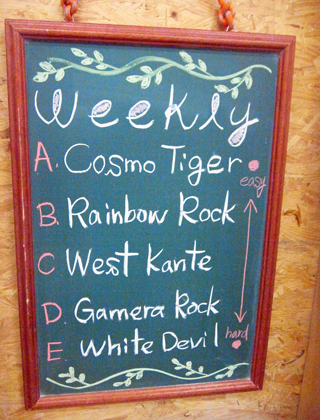 Weekly
A. Cosmo Tiger
easy
B. Rainbow Rock
C West Kante
D. Gamera Rock
hard
E. White Devil